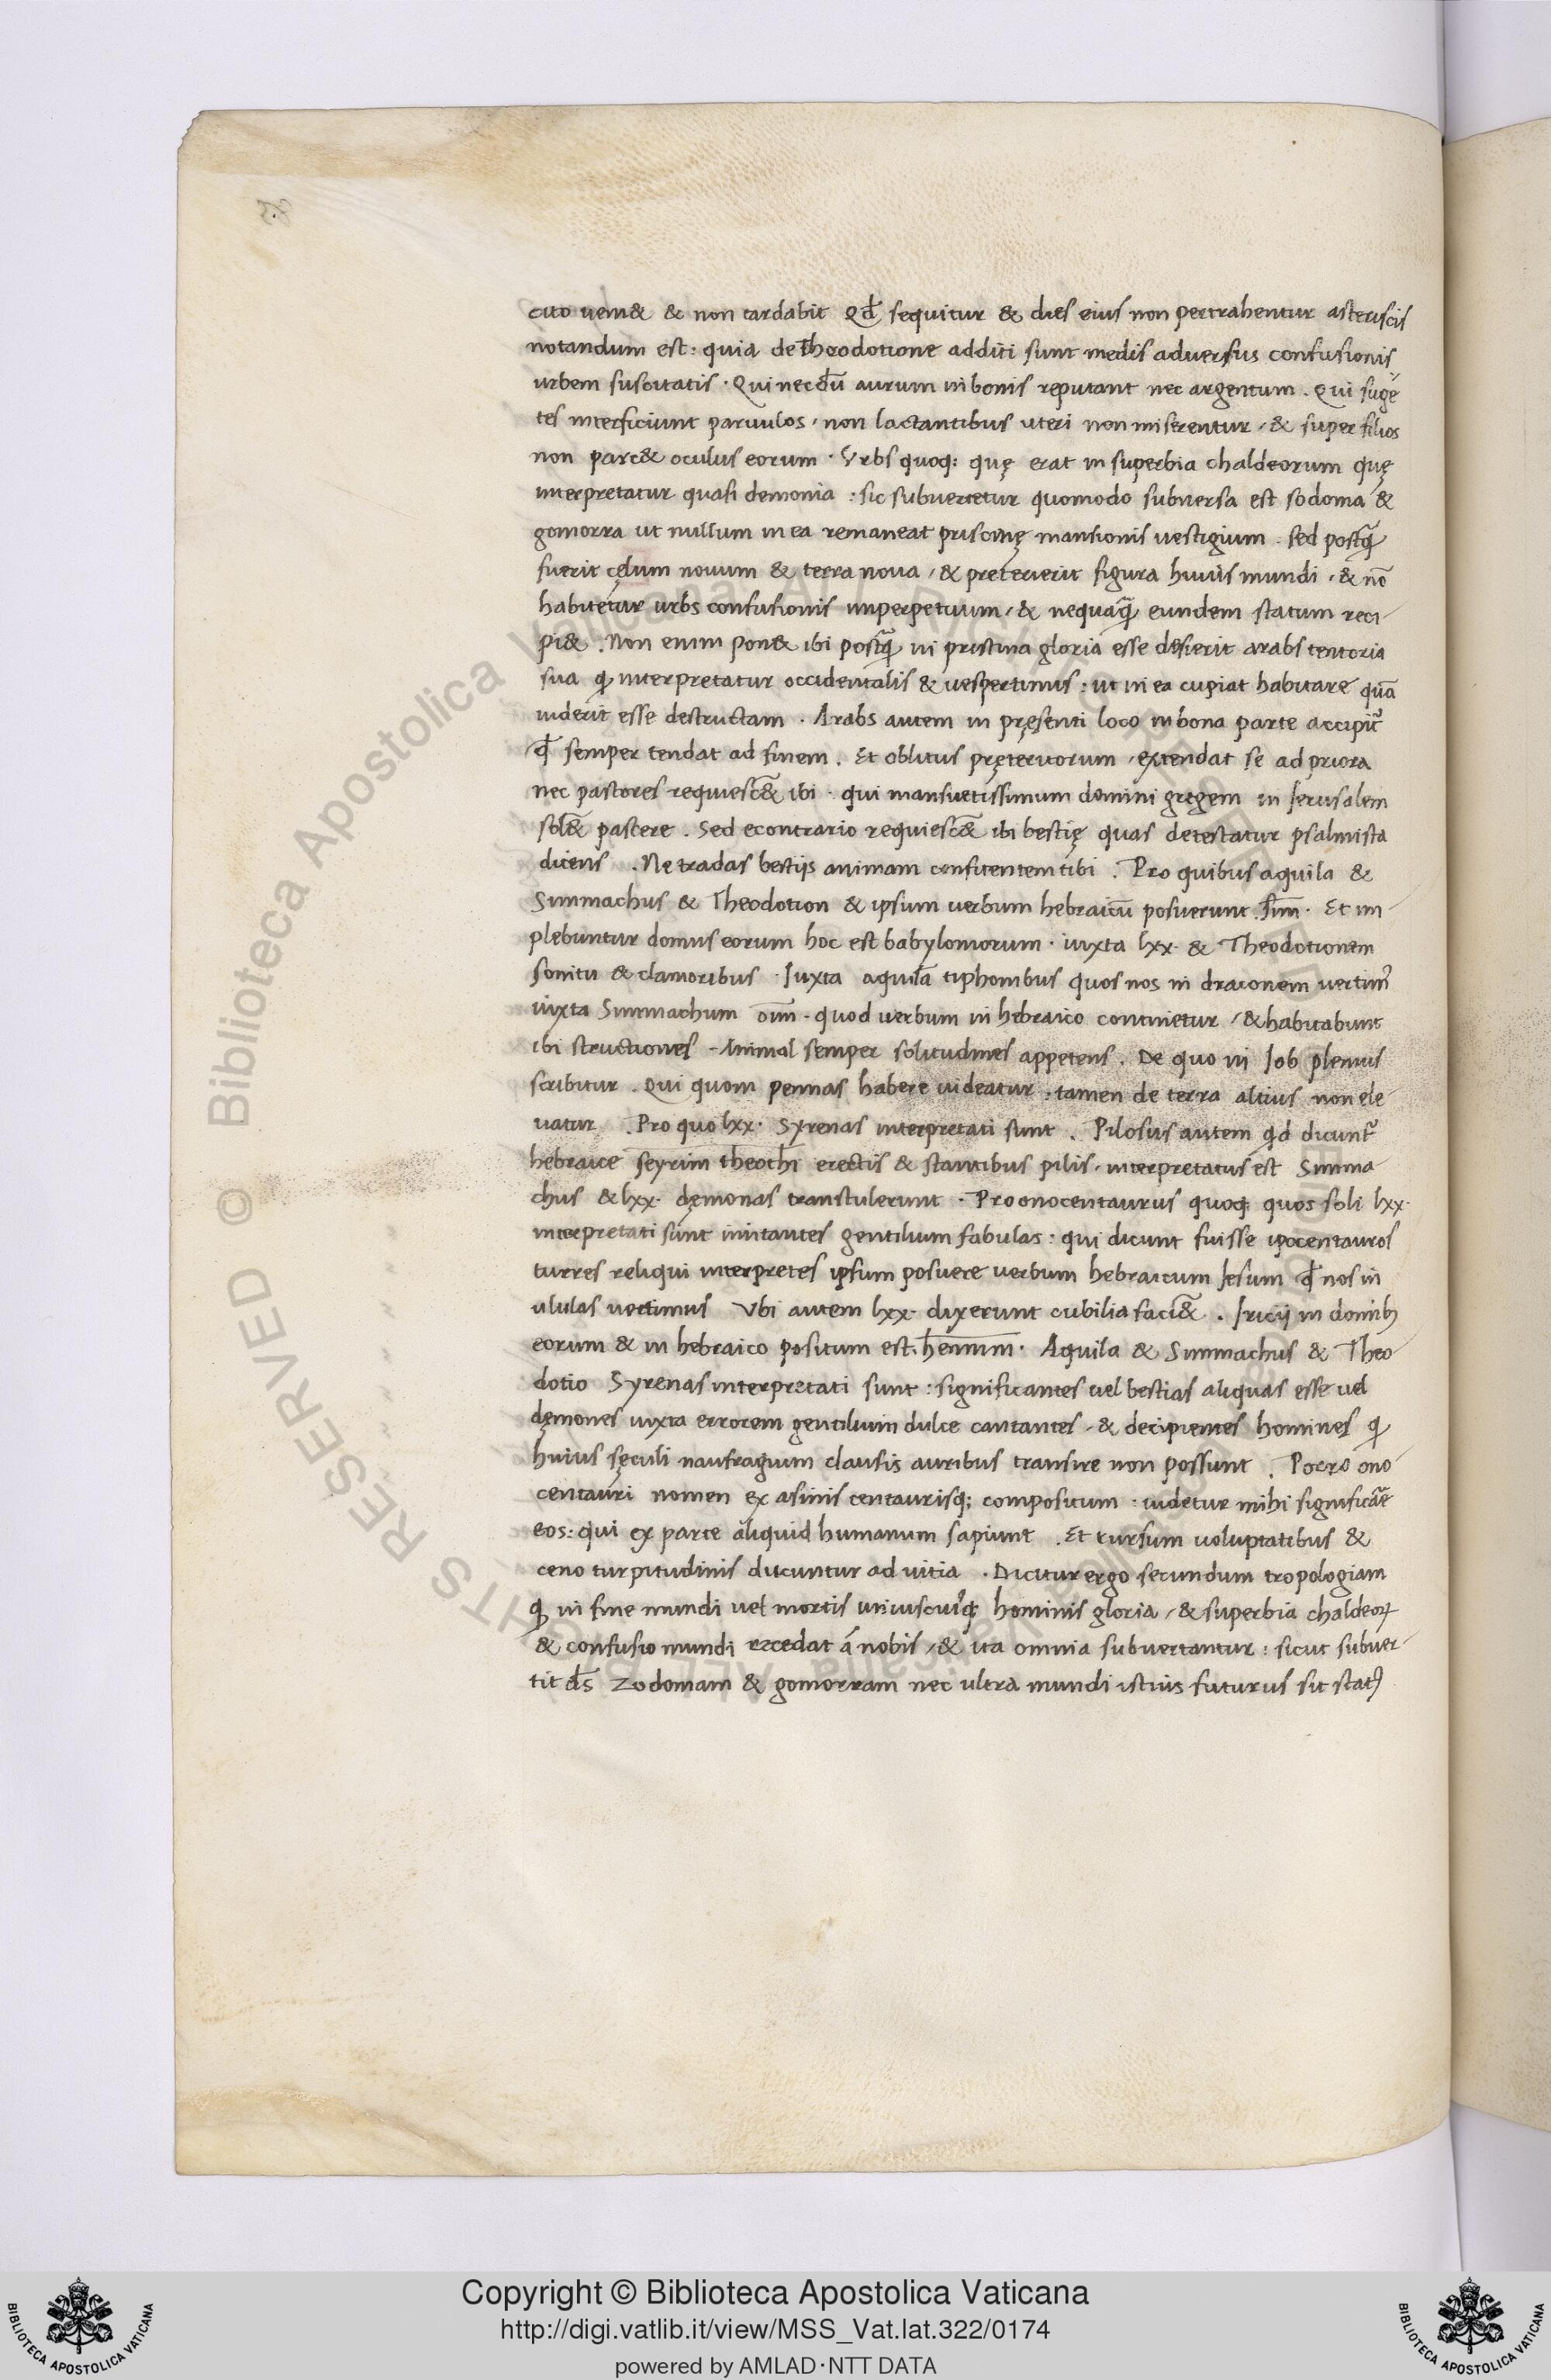 cito veni& & non tardabit Qđ sequitur & dies eius non pertrahentur asteriscis
notandum est: quia de Theodotione additi sunt medis adversus confusionis
urbem suscitatis. Qui necdū aurum in bonis reputant nec argentum. Qui sugē
tes interficiunt parvulos, non lactantibus uteri non miserentur, & super filios
non parc& oculus eorum. Urbs quoq: quę erat in superbia chaldeorum quę
interpretatur quasi demonia: sic subvertetur quomodo subversa est sodoma &
gomorra ut nullum in ea remaneat priscinę mansionis vestigium. sed postꝗ̄
fuerit cęlum novum & terra nova, & preterierit figura huius mundi, & nō
habitetur urbs confusionis inperpetuum, & nequaꝗ̄ eundem statum reci-
pi&. Non enim pon& ibi postꝗ̄ in pristina gloria esse desierit arabs tentoria
sua ꝙ interpretatur occidentalis & vespertinus: ut in ea cupiat habitare quā
viderit esse destructam. Arabs autem in pręsenti loco in bona parte accipit᷑
qđ semper tendat ad finem. Et oblitus pręteritorum, extendat se ad priora
nec pastores requiesc&̄ ibi. qui mansuetissimum domini gregem in Jerusalem
sol&̄ pastere. Sed econtrario requiesc&̄ ibi bestię quas detestatur psalmista
dicens. Ne tradas bestijs animam confitentem tibi. Pro quibus aquila &
Simmachus & Theodotion & ipsum verbum hebraicū posuerunt. sīm. Et im-
plebuntur domus eorum hoc est babylomorum. iuxta lxx. & Theodotionem
sonitu & clamoribus. Juxta aquilā tiphonibus quos nos in draconem vertim᷑
iuxta Simmachum oīm. quod verbum in hebraico continetur, & habitabunt
ibi structiones. Animal semper solitudines appetens. De quo in Job plenius
scribitur. Qui quom pennas habere videatur: tamen de terra altius non ele
vatur. Pro quo lxx. Syrenas interpretati sunt. Pilosus autem qđ dicunt᷑
hebraice seyrim theothi erectis & stantibus pilis, interpretatus est Simma-
chus & lxx. dęmonas transtulerunt. Pro onocentaurus quoq: quos soli lxx.
interpretati sunt imitantes gentilium fabulas: qui dicunt fuisse ipocentauros
turres reliqui interpretes ipsum posuere verbum hebraicum Jesum qđ nos in
ululas vertimus Ubi autem lxx. dixerunt cubilia faci&̄. Iricij in domibꝫ
eorum & in hebraico positum est. hennim. Aquila & Simmachus & Theo-
dotio Syrenas interpretati sunt: significantes vel bestias aliquas esse vel
dęmones iuxta errorem gentilium dulce cantantes, & decipientes homines ꝙ
huius sęculi naufragium clausis auribus transire non possunt. Porro ono
centauri nomen ex asinis centaurisq; compositum: videtur mihi significāre
eos: qui ex parte aliquid humanum sapiunt. Et rursum voluptatibus &
ceno turpitudinis ducuntur ad vitia. Dicitur ergo secundum tropologiam
ꝙ in fine mundi vel mortis uniuscuiꝰq; hominis gloria, & superbia chaldeoꝝ
& confusio mundi recedat á nobis, & ita omnia subvertantur: sicut subver-
tit ds̄ Zodomam & gomorram nec ultra mundi istius futurus sit statꝰ
Copyright © Biblioteca Apostolica Vaticana
http://digi.vatlib.it/view/MSS_Vat.lat.322/0174
powered by AMLAD·NTT DATA